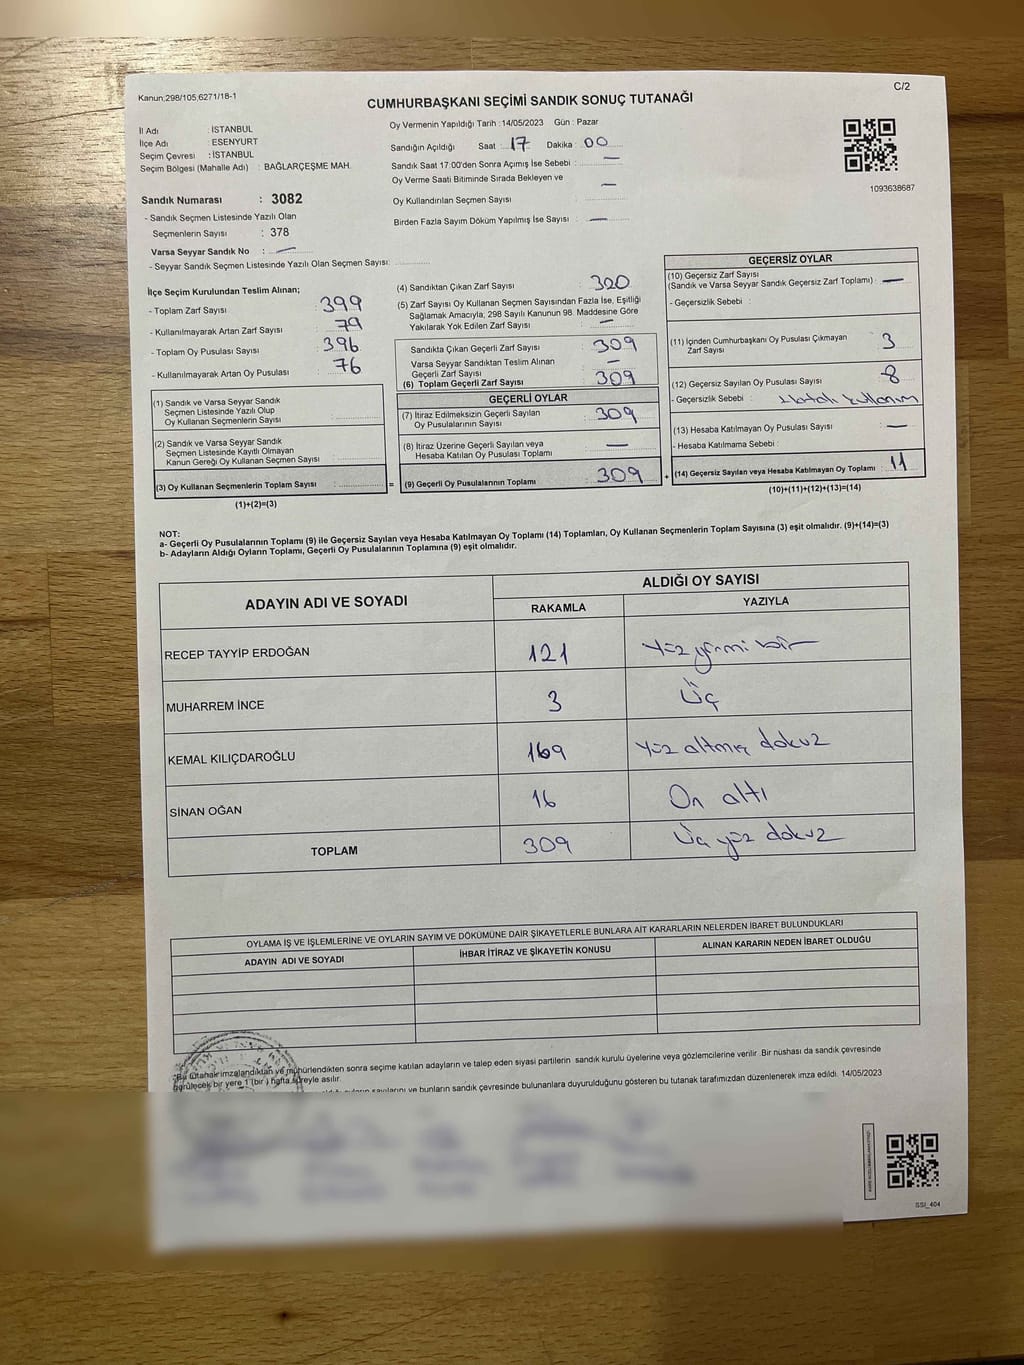 Kanun;298/105,6271/18-1
C/2
CUMHURBAŞKANI SEÇİMİ SANDIK SONUÇ TUTANAĞI
İl Adı : İSTANBUL
İlçe Adı : ESENYURT
Seçim Çevresi : İSTANBUL
Seçim Bölgesi (Mahalle Adı) : BAĞLARÇEŞME MAH.
Oy Vermenin Yapıldığı Tarih :14/05/2023 Gün : Pazar
Sandığın Açıldığı Saat : 17 Dakika : 00
Sandık Saat 17.00'den Sonra Açımış İse Sebebi : —
Oy Verme Saati Bitiminde Sırada Bekleyen ve
Oy Kullandırılan Seçmen Sayısı : —
Birden Fazla Sayım Döküm Yapılmış İse Sayısı : —
1093638687
Sandık Numarası : 3082
- Sandık Seçmen Listesinde Yazılı Olan
Seçmenlerin Sayısı : 378
Varsa Seyyar Sandık No : —
- Seyyar Sandık Seçmen Listesinde Yazılı Olan Seçmen Sayısı:
İlçe Seçim Kurulundan Teslim Alınan;
- Toplam Zarf Sayısı : 399
- Kullanılmayarak Artan Zarf Sayısı : 79
- Toplam Oy Pusulası Sayısı : 396
- Kullanılmayarak Artan Oy Pusulası : 76
(1) Sandık ve Varsa Seyyar Sandık
Seçmen Listesinde Yazılı Olup
Oy Kullanan Seçmenlerin Sayısı :
(2) Sandık ve Varsa Seyyar Sandık
Seçmen Listesinde Kayıtlı Olmayan
Kanun Gereği Oy Kullanan Seçmen Sayısı :
(3) Oy Kullanan Seçmenlerin Toplam Sayısı :
(1)+(2)=(3)
(4) Sandıktan Çıkan Zarf Sayısı : 320
(5) Zarf Sayısı Oy Kullanan Seçmen Sayısından Fazla İse, Eşitliği
Sağlamak Amacıyla, 298 Sayılı Kanunun 98. Maddesine Göre
Yakılarak Yok Edilen Zarf Sayısı : —
Sandıkta Çıkan Geçerli Zarf Sayısı : 309
Varsa Seyyar Sandıktan Teslim Alınan
Geçerli Zarf Sayısı : —
(6) Toplam Geçerli Zarf Sayısı : 309
GEÇERLİ OYLAR
(7) İtiraz Edilmeksizin Geçerli Sayılan
Oy Pusulalarının Sayısı : 309
(8) İtiraz Üzerine Geçerli Sayılan veya
Hesaba Katılan Oy Pusulası Toplamı : —
(9) Geçerli Oy Pusulalarının Toplamı : 309
GEÇERSİZ OYLAR
(10) Geçersiz Zarf Sayısı
(Sandık ve Varsa Seyyar Sandık Geçersiz Zarf Toplamı) : —
- Geçersizlik Sebebi :
(11) İçinden Cumhurbaşkanı Oy Pusulası Çıkmayan
Zarf Sayısı : 3
(12) Geçersiz Sayılan Oy Pusulası Sayısı : 8
- Geçersizlik Sebebi : Hatalı kullanım
(13) Hesaba Katılmayan Oy Pusulası Sayısı : —
- Hesaba Katılmama Sebebi :
(14) Geçersiz Sayılan veya Hesaba Katılmayan Oy Toplamı : 11
(10)+(11)+(12)+(13)=(14)
NOT:
a- Geçerli Oy Pusulalarının Toplamı (9) ile Geçersiz Sayılan veya Hesaba Katılmayan Oy Toplamı (14) Toplamları, Oy Kullanan Seçmenlerin Toplam Sayısına (3) eşit olmalıdır. (9)+(14)=(3)
b- Adayların Aldığı Oyların Toplamı, Geçerli Oy Pusulalarının Toplamına (9) eşit olmalıdır.
ADAYIN ADI VE SOYADI
ALDIĞI OY SAYISI
RAKAMLA YAZIYLA
RECEP TAYYİP ERDOĞAN 121 Yüz yirmi bir
MUHARREM İNCE 3 Üç
KEMAL KILIÇDAROĞLU 169 Yüz altmış dokuz
SİNAN OĞAN 16 On altı
TOPLAM 309 Üç yüz dokuz
OYLAMA İŞ VE İŞLEMLERİNE VE OYLARIN SAYIM VE DÖKÜMÜNE DAİR ŞİKAYETLERLE BUNLARA AİT KARARLARIN NELERDEN İBARET BULUNDUKLARI
ADAYIN ADI VE SOYADI İHBAR İTİRAZ VE ŞİKAYETİN KONUSU ALINAN KARARIN NEDEN İBARET OLDUĞU
"Bu tutanak imzalandıktan ve mühürlendikten sonra seçime katılan adayların ve talep eden siyasi partilerin sandık kurulu üyelerine veya gözlemcilerine verilir. Bir nüshası da sandık çevresinde
görülecek bir yere 1 (bir ) hafta süreyle asılır.
sayılarını ve bunların sandık çevresinde bulunanlara duyurulduğunu gösteren bu tutanak tarafımızdan düzenlenerek imza edildi. 14/05/2023
SSİ_404